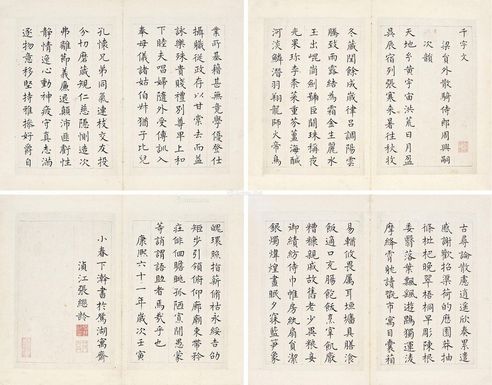 千字文
梁員外散騎侍郎周興嗣
次韻
天地玄黃宇宙洪荒日月盈
昃辰宿列張寒來暑往秋收
冬藏閏餘成歲律呂調陽雲
騰致雨露結為霜金生麗水
玉出崑崗劍號巨闕珠稱夜
光果珍李柰菜重芥薑海鹹
河淡鱗潛羽翔龍師火帝鳥
業所基藉甚無竟學優登仕
攝職從政存以甘棠去而益
詠樂殊貴賤禮別尊卑上和
下睦夫唱婦隨外受傅訓入
奉母儀諸姑伯叔猶子比兒
孔懷兄弟同氣連枝交友投
分切磨箴規仁慈隱惻造次
弗離節義廉退顛沛匪虧性
靜情逸心動神疲守真志滿
逐物意移堅持雅操好爵自
古尋論散慮逍遙欣奏累遣
慼謝歡招渠荷的歷園莽抽
條枇杷晚翠梧桐早彫陳根
委翳落葉飄颻遊鵾獨運凌
摩絳霄耽讀翫市寓目囊箱
易輶攸畏屬耳垣牆具膳湌
飯適口充腸飽飫烹宰飢厭
糟糠親戚故舊老少異糧妾
御績紡侍巾帷房紈扇員潔
銀燭煒煌晝眠夕寐藍笋象
魄環照指薪修祜永綏吉劭
矩步引領俯仰廊廟束帶矜
莊徘徊瞻眺孤陋寡聞愚蒙
等誚謂語助者焉哉乎也
康熙六十一年歲次壬寅
小春下澣書於鴛湖寓齋
湞江張總齡